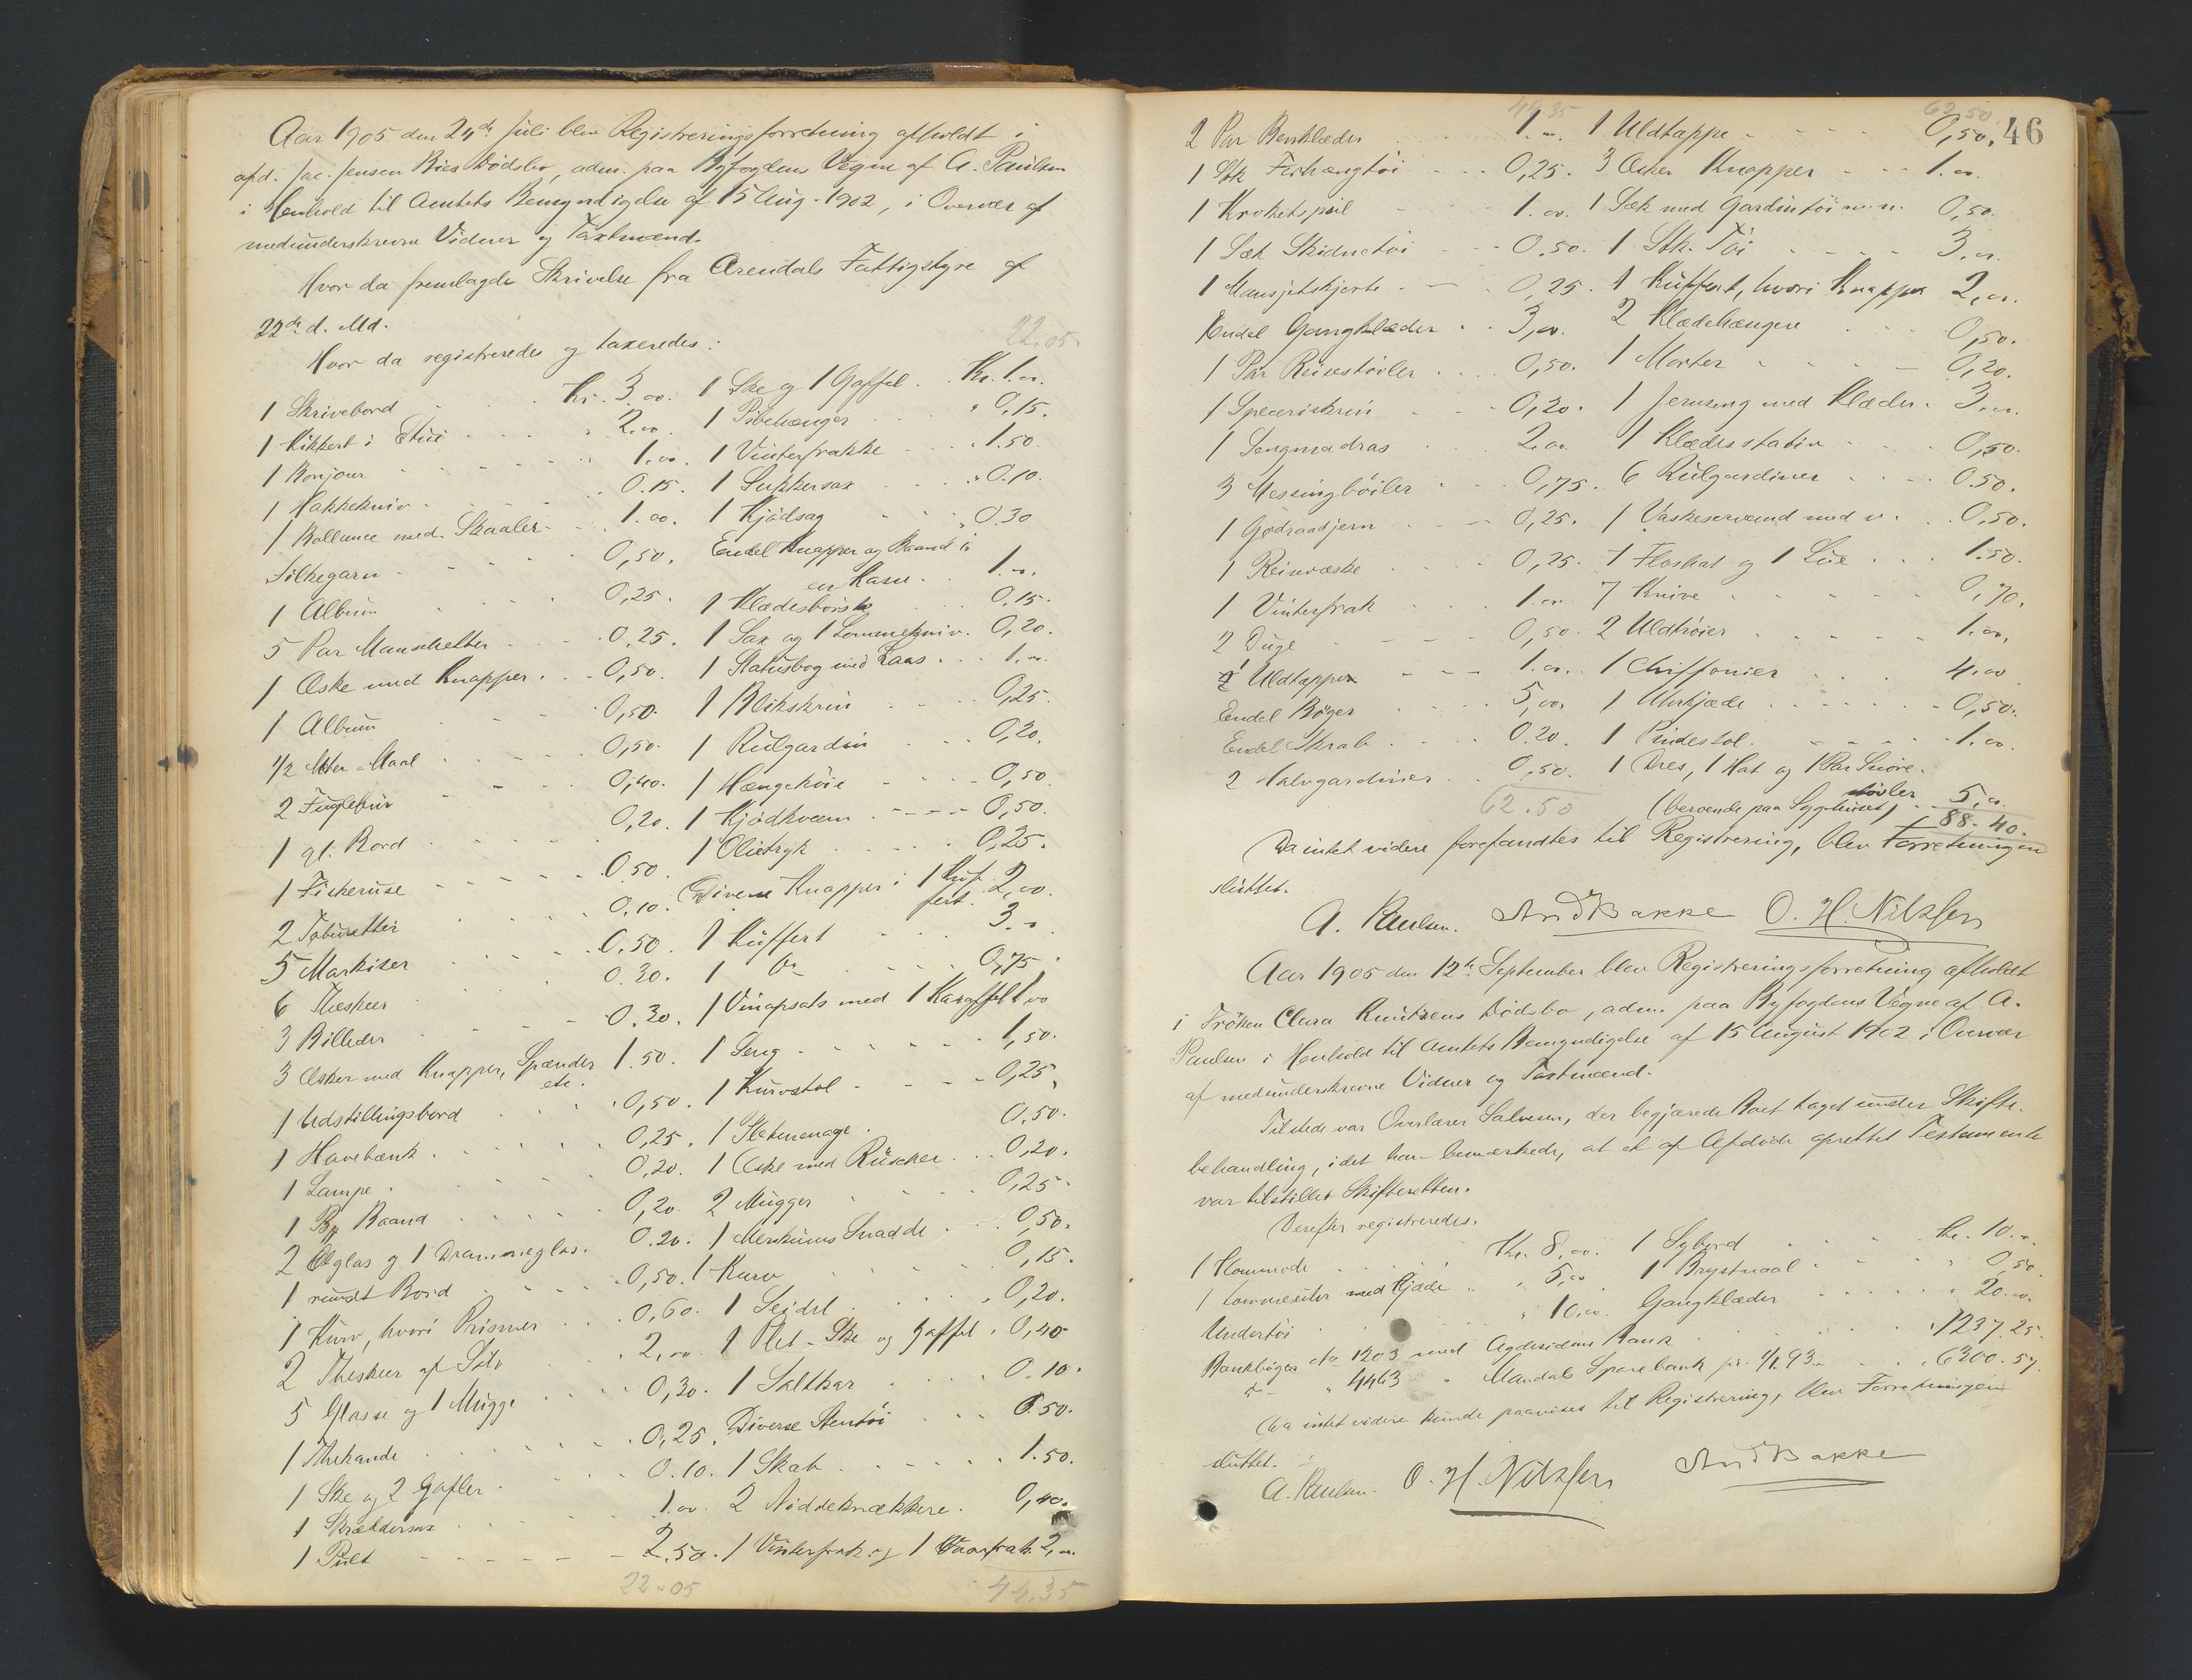 Aar 1905 den 24de Juli blev Registreringsforretning afholdt i
afd. Jac. Jensen Bies Dødsbo, adm. paa Byfogdens Vegne af A. Paulsen
i Henhold til Amtets Bemyndigelse af 15 Aug. 1902, i Overvær af
medunderskrevne Vidner og Taxtmænd.
Hvor da fremlagdes Skrivelse fra Arendals Fattigstyre af
22de d. Md.
Hvor da registreredes og taxeredes:
22.05
1 Skrivebord Kr. 3,00.
1 Kikkert i Etui 2,00
1 Bonjour 1.00.
1 Hakkekniv 0.15.
1 Ballance med Skaaler 1.00.
Silkegarn 0,50.
1 Album 0,25.
5 Par Manschetter 0.25.
1 Æske med Knapper 0,50.
1 Album 0,50.
1/2 Meter-Maal 0,50.
2 Fuglebur 0,40.
1 gl. Bord 0,20.
1 Fiskeruse 0.50
2 Taburetter 0.10.
5 Markiser 0.50.
6 Theskeer 0.30.
3 Billeder 0.30.
3 Æsker med Knapper, Spænder 1.50.
etc.
1 Udstillingsbord 0,50.
1 Havebænk 0,25.
1 Lampe 0,20.
1 Baand 0,20.
2 Ølglas og 1 Drammeglas. 0.20.
1 rundt Bord 0,50.
1 Kurv, hvori Prismer 0,60.
2 Theskeer af Sølv 2,00.
5 Glasse og 1 Mugge 0,30.
1 Thekande 0,25.
1 Ske og 2 Gafler 0.10.
1 Skræddersax 1.00.
1 Pult 2.50.
22.05
1 Ske og 1 Gaffel Kr. 1.00.
1 Pibehænger 0,15.
1 Vinterfrakke 1.50.
1 Sukkersax 0.10.
1 Kjødsag 0.30
Endel Knapper og Baand i
en Kasse 1.00.
1 Klædesbørste 0.15.
1 Sax og 1 Lommekniv. 0,20.
1 Statusbog med Laas 1.00.
1 Blikskrin 0,25.
1 Rulgardin 0,20.
1 Hængekøie 0,50
1 Kjødkværn 0,50.
1 Olietryk 0,25.
Diverse Knapper i 1 Kuf- 2,00.
fert.
1 Kuffert 3.00
1 Do 0,75.
1 Vinopsats med 1 Karaffel 1,00
1 Seng 1,50.
1 Kurvstol 0,25.
1 Platmenage 0.50.
1 Æske med Rüscher 0,20.
2 Mugger 0,25.
1 Merskums Snadde 0,50.
1 Kurv 0,15.
1 Seidel 0,20.
1 Plet-Ske og Gaffel 0,40
1 Saltkar 0.10.
Diverse Stentøi 0.50.
1 Skab 1.50.
2 Nøddeknækkere. 0,40.
1 Vinterfrak og 1 Vaarfrak. 2,00.
44.35
46
44.35
2 Par Benklæder 1.00.
1 Stk Forhængtøi 0,25.
1 Kroketspil 1.00.
1 Sæk Skidnetøi 0.50.
1 Mansjetskjorte 0,25.
Endel Gangklæder 3,00.
1 Par Reisestøvler 0,50.
1 Speceriskrin 0,20.
1 Sengmadras 2.00
3 Messingbøiler 0,75.
1 Godraadjern 0,25.
1 Reisevæske 0,25.
1 Vinterfrak 1.00
2 Duge 0,50.
1 Uldtæppe 1.00.
Endel Bøger 5,00.
Endel Skrab 0.20.
2 Halvgardiner 0,50.
62.50
62.50
1 Uldtæppe 0,50.
3 Æsker Knapper 1.00.
1 Sæk med Gardintøi m.m. 0,50.
1 Stk. Tøi 3.00.
1 Kuffert, hvori Knapper 2,00.
2 Klædehængere 0,50.
1 Morter 0,20.
1 Jernseng med Klæder. 3,00.
1 Klædesstativ 0,50.
6 Rulgardiner 0.50.
1 Vaskeservand med v. 0,50.
1 Floshat og 1 Lue 1.50.
7 Knive 0,70.
2 Uldtrøier 1.00.
1 Chiffonier 4.00
1 Uhrkjæde 0,50.
1 Pindestol 1.00.
1 Dres, 1 Hat og 1 Par Snøre-
støvler
(beroende paa Sygehuset) 5.00.
88.40.
Da intet videre forefandtes til Registrering, blev Forretningen
sluttet.
A. Paulsen. And Bakke O. H. Nilssen
Aar 1905 den 12te September blev Registreringsforretning afholdt
i Frøken Clara Knutzens Dødsbo, adm. paa Byfogdens Vegne af A.
Paulsen i Henhold til Amtets Bemyndigelse af 15 August 1902 i Overvær
af medunderskrevne Vidner og Taxtmænd.
Tilstede var Overlærer Salvesen, der begjærede Boet taget under Skifte-
behandling, idet han bemærkede, at et af Afdøde oprettet Testamente
var tilstillet Skifteretten.
Derefter registreredes.
1 Kommode Kr. 8,00. 1 Sybord kr. 10.00.
1 Lommeuhr med Kjæde 5,00 1 Brystnaal 0,50
Undertøi 10,00. Gangklæder 20.00.
Bankbøger No 1203 med Agdesidens Bank 1237.25.
do 4463 " Mandals Sparebank pr. 1/1 93 6300.57.
Da intet videre kunde paavises til Registrering, blev Forretningen
sluttet.
A. Paulsen. O. H. Nilssen And Bakke